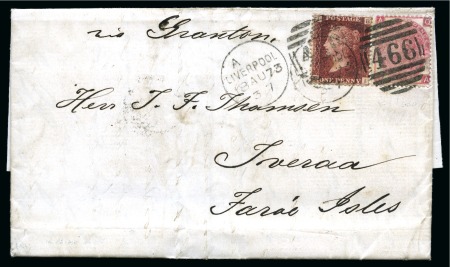 via Granton
A
LIVERPOOL
AU 73
POSTAGE
ONE PENNY
466
Herr T. F. Thomsen
Tveraa
Faröe Isles